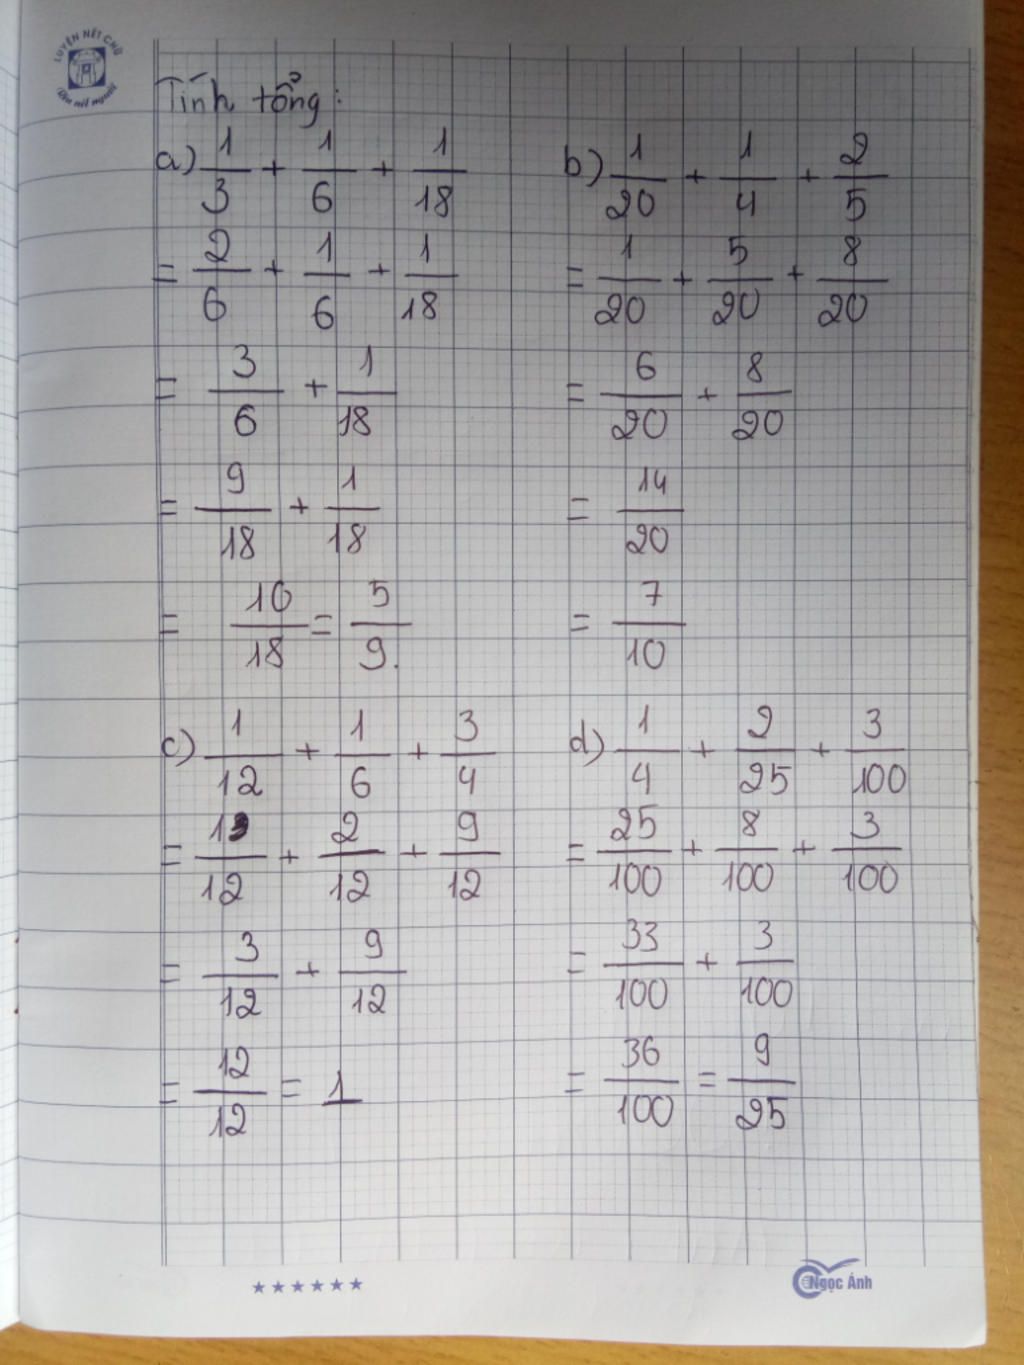 LUYỆN NÉT CHỮ
Rèn nết người
Tính tổng:
a) 1/3 + 1/6 + 1/18
= 2/6 + 1/6 + 1/18
= 3/6 + 1/18
= 9/18 + 1/18
= 10/18 = 5/9.
b) 1/20 + 1/4 + 2/5
= 1/20 + 5/20 + 8/20
= 6/20 + 8/20
= 14/20
= 7/10
c) 1/12 + 1/6 + 3/4
= 1/12 + 2/12 + 9/12
= 3/12 + 9/12
= 12/12 = 1
d) 1/4 + 2/25 + 3/100
= 25/100 + 8/100 + 3/100
= 33/100 + 3/100
= 36/100 = 9/25
Ngọc Ánh